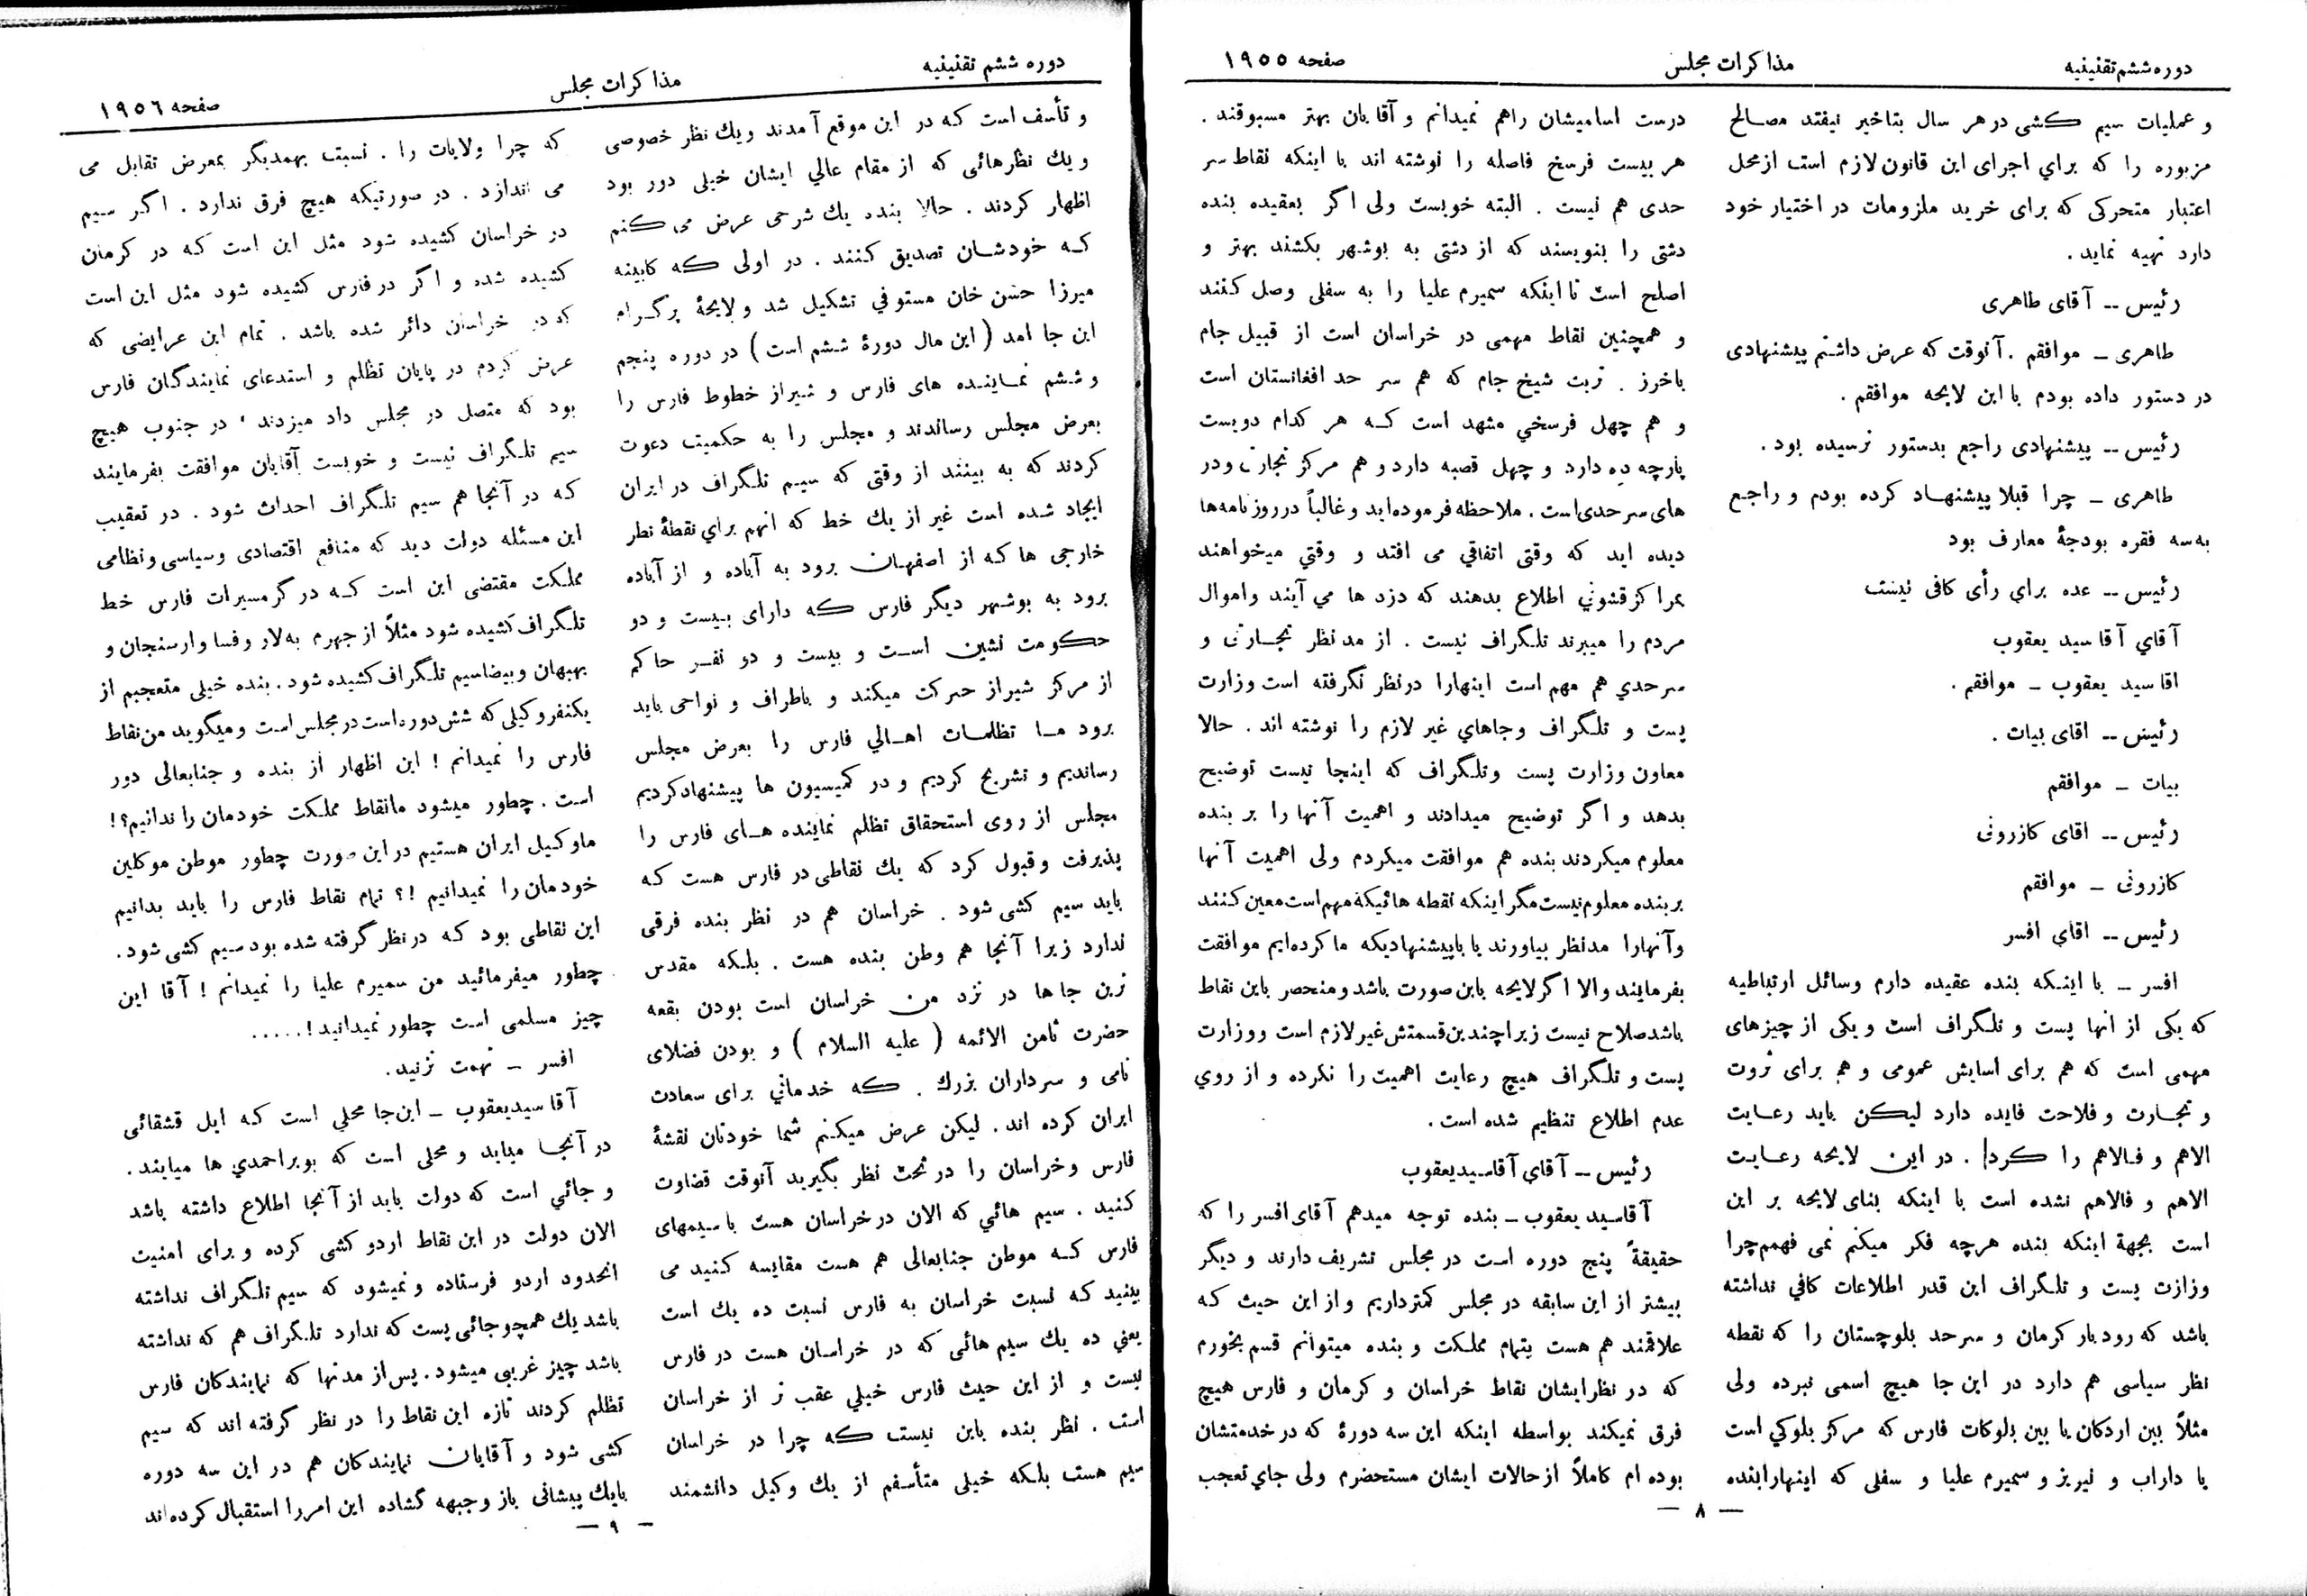 دوره ششم تقنینیه
مذاکرات مجلس
صفحه ۱۹۵۵
و عملیات سیم کشی در هر سال بتاخیر نیفتد مصالح
مزبوره را که برای اجرای این قانون لازم است از محل
اعتبار متحرکی که برای خرید ملزومات در اختیار خود
دارد تهیه نماید .
رئیس -- آقای طاهری
طاهری - موافقم . آنوقت که عرض داشتم پیشنهادی
در دستور داده بودم با این لایحه موافقم .
رئیس -- پیشنهادی راجع بدستور نرسیده بود .
طاهری - چرا قبلا پیشنهاد کرده بودم و راجع
به سه فقره بودجهٔ معارف بود
رئیس -- عده برای رأی کافی نیست
آقای آقا سید یعقوب
اقا سید یعقوب - موافقم .
رئیس -- اقای بیات .
بیات - موافقم
رئیس -- اقای کازرونی
کازرونی - موافقم
رئیس -- اقای افسر
افسر - با اینکه بنده عقیده دارم وسائل ارتباطیه
که یکی از انها پست و تلگراف است و یکی از چیزهای
مهمی است که هم برای اسایش عمومی و هم برای ثروت
و تجارت و فلاحت فایده دارد لیکن باید رعایت
الاهم و فالاهم را کرد . در این لایحه رعایت
الاهم و فالاهم نشده است با اینکه بنای لایحه بر این
است بجهة اینکه بنده هرچه فکر میکنم نمی فهمم چرا
وزازت پست و تلگراف این قدر اطلاعات کافی نداشته
باشد که رودبار کرمان و سرحد بلوچستان را که نقطه
نظر سیاسی هم دارد در این جا هیچ اسمی نبرده ولی
مثلاً بین اردکان یا بین بلوکات فارس که مرکز بلوکی است
یا داراب و نیریز و سمیرم علیا و سفلی که اینهارا بنده
درست اسامیشان راهم نمیدانم و آقایان بهتر مسبوقند .
هر بیست فرسخ فاصله را نوشته اند با اینکه نقاط سر
حدی هم نیست . البته خوبست ولی اگر بعقیده بنده
دشتی را بنویسند که از دشتی به بوشهر بکشند بهتر و
اصلح است تا اینکه سمیرم علیا را به سفلی وصل کنند
و همچنین نقاط مهمی در خراسان است از قبیل جام
باخرز . تربت شیخ جام که هم سر حد افغانستان است
و هم چهل فرسخی مشهد است که هر کدام دویست
پارچه ده دارد و چهل قصبه دارد و هم مرکز تجارت و در
های سرحدی است . ملاحظه فرموده اید و غالباً در روز نامه ها
دیده اید که وقتی اتفاقی می افتد و وقتی میخواهند
بمراکز قشونی اطلاع بدهند که دزد ها می آیند و اموال
مردم را میبرند تلگراف نیست . از مد نظر تجارتی و
سرحدی هم مهم است اینهارا در نظر نگرفته است وزارت
پست و تلگراف و جاهای غیر لازم را نوشته اند . حالا
معاون وزارت پست و تلگراف که اینجا نیست توضیح
بدهد و اگر توضیح میدادند و اهمیت آنها را بر بنده
معلوم میکردند بنده هم موافقت میکردم ولی اهمیت آنها
بر بنده معلوم نیست مگر اینکه نقطه هائیکه مهم است معین کنند
و آنهارا مدنظر بیاورند یا با پیشنهادیکه ما کرده ایم موافقت
بفرمایند والا اگر لایحه باین صورت باشد و منحصر باین نقاط
باشد صلاح نیست زیرا چندین قسمتش غیر لازم است و وزارت
پست و تلگراف هیچ رعایت اهمیت را نکرده و از روی
عدم اطلاع تنظیم شده است .
رئیس -- آقای آقا سید یعقوب
آقاسید یعقوب - بنده توجه میدهم آقای افسر را که
حقیقةً پنج دوره است در مجلس تشریف دارند و دیگر
بیشتر از این سابقه در مجلس کمتر داریم و از این حیث که
علاقمند هم هست بتمام مملکت و بنده میتوانم قسم بخورم
که در نظر ایشان نقاط خراسان و کرمان و فارس هیچ
فرق نمیکند بواسطه اینکه این سه دورهٔ که در خدمتشان
بوده ام کاملاً از حالات ایشان مستحضرم ولی جای تعجب
— ۸ —
دوره ششم تقنینیه
مذاکرات مجلس
صفحه ۱۹۵۶
و تأسف است که در این موقع آمدند و یك نظر خصوصی
و یك نظرهائی که از مقام عالی ایشان خیلی دور بود
اظهار کردند . حالا بنده یك شرحی عرض می کنم
که خودشان تصدیق کنند . در اولی که کابینه
میرزا حسن خان مستوفی تشکیل شد و لایحهٔ پرگرام
این جا امد ( این مال دورهٔ ششم است ) در دوره پنجم
و ششم نماینده های فارس و شیراز خطوط فارس را
بعرض مجلس رساندند و مجلس را به حکمیت دعوت
کردند که به بینند از وقتی که سیم تلگراف در ایران
ایجاد شده است غیر از یك خط که انهم برای نقطهٔ نظر
خارجی ها که از اصفهان برود به آباده و از آباده
برود به بوشهر دیگر فارس که دارای بیست و دو
حکومت نشین است و بیست و دو نفر حاکم
از مرکز شیراز حرکت میکند و باطراف و نواحی باید
برود ما تظلمات اهالی فارس را بعرض مجلس
رساندیم و تشریح کردیم و در کمیسیون ها پیشنهاد کردیم
مجلس از روی استحقاق تظلم نماینده های فارس را
پذیرفت و قبول کرد که یك نقاطی در فارس هست که
باید سیم کشی شود . خراسان هم در نظر بنده فرقی
ندارد زیرا آنجا هم وطن بنده هست . بلکه مقدس
ترین جاها در نزد من خراسان است بودن بقعه
حضرت ثامن الائمه ( علیه السلام ) و بودن فضلای
نامی و سرداران بزرك . که خدماتی برای سعادت
ایران کرده اند . لیکن عرض میکنم شما خودتان نقشهٔ
فارس و خراسان را در تحت نظر بگیرید آنوقت قضاوت
کنید . سیم هائی که الان در خراسان هست با سیمهای
فارس که موطن جنابعالی هم هست مقایسه کنید می
بینید که نسبت خراسان به فارس نسبت ده یك است
یعنی ده یك سیم هائی که در خراسان هست در فارس
نیست و از این حیث فارس خیلی عقب تر از خراسان
است . نظر بنده باین نیست که چرا در خراسان
سیم هست بلکه خیلی متأسفم از یك وکیل دانشمند
که چرا ولایات را . نسبت بهمدیگر بمعرض تقابل می
می اندازد . در صورتیکه هیچ فرق ندارد . اگر سیم
در خراسان کشیده شود مثل این است که در کرمان
کشیده شده و اگر در فارس کشیده شود مثل این است
که در خراسان دائر شده باشد . تمام این عرایضی که
عرض کردم در پایان تظلم و استدعای نمایندگان فارس
بود که متصل در مجلس داد میزدند ، در جنوب هیچ
سیم تلگراف نیست و خوبست آقایان موافقت بفرمایند
که در آنجا هم سیم تلگراف احداث شود . در تعقیب
این مسئله دولت دید که منافع اقتصادی و سیاسی و نظامی
مملکت مقتضی این است که در گرمسیرات فارس خط
تلگراف کشیده شود مثلاً از جهرم به لار و فسا و ارسنجان و
بهبهان و بیضا سیم تلگراف کشیده شود . بنده خیلی متعجبم از
یکنفر وکیلی که شش دوره است در مجلس است و میگوید من نقاط
فارس را نمیدانم ! این اظهار از بنده و جنابعالی دور
است . چطور میشود ما نقاط مملکت خودمان را ندانیم؟!
ما وکیل ایران هستیم در این صورت چطور موطن موکلین
خودمان را نمیدانیم !؟ تمام نقاط فارس را باید بدانیم
این نقاطی بود که در نظر گرفته شده بود سیم کشی شود .
چطور میفرمائید من سمیرم علیا را نمیدانم ! آقا این
چیز مسلمی است چطور نمیدانید ! . . . . .
افسر - تهمت نزنید .
آقا سید یعقوب - این جا محلی است که ایل قشقائی
در آنجا میاید و محلی است که بویراحمدی ها میایند .
و جائی است که دولت باید از آنجا اطلاع داشته باشد
الان دولت در این نقاط اردو کشی کرده و برای امنیت
انحدود اردو فرستاده و نمیشود که سیم تلگراف نداشته
باشد یك همچو جائی پست که ندارد تلگراف هم که نداشته
باشد چیز غریبی میشود . پس از مدتها که نمایندکان فارس
تظلم کردند تازه این نقاط را در نظر گرفته اند که سیم
کشی شود و آقایان نمایندکان هم در این سه دوره
بایك پیشانی باز و جبهه گشاده این امر را استقبال کرده اند
— ۹ —